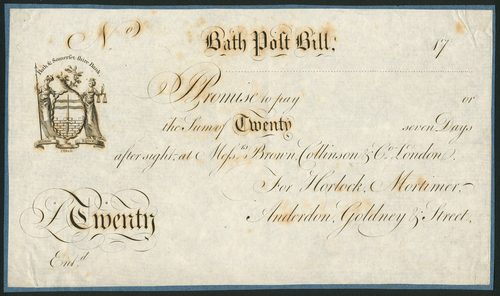 No Bath Post Bill; 17
Bath & Somerset Shire Bank
I Promise to pay or
the Sum of Twenty seven Days
after sight, at Messrs Brown, Collinson & Co. London.
For Horlock, Mortimer,
Anderdon, Goldney & Street.
£ Twenty
Entd